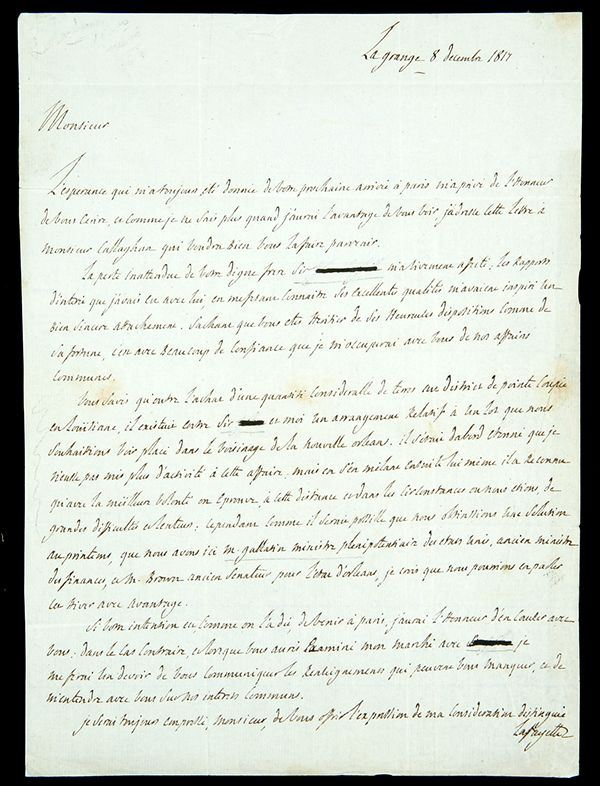 Lagrange 8 decembre 1817
Monsieur
L'esperance qui m'a toujours eté donnée de votre prochaine arrivée à paris m'a privé de l'Honneur
de vous écrire, et comme je ne sais plus quand j'aurai l'avantage de vous voir, j'adresse cette lettre à
Monsieur Callaghan qui voudra bien vous la faire parvenir.
La perte inattendue de votre digne frere Sir m'a vivement affecté; les rapports
d'interêt que j'avais eu avec lui, en me faisant connaitre ses excellentes qualités m'avaient inspiré un
bien sincere attachement. Sachant que vous etes Heritier de ses Heureuses dispositions comme de
sa fortune, c'est avec Beaucoup de confiance que je m'occuperai avec vous de nos affaires
communes.
Vous savés qu'outre l'achat d'une quantité considerable de terres au district de pointe Coupée
en Louisiane, il existait entre Sir et moi un arrangement relatif à un lot que nous
souhaitions voir placé dans le voisinage de la nouvelle orleans. il serait d'abord etonné que je
n'eusse pas mis plus d'activité à cette affaire. mais en s'en mêlant ensuite lui même il a reconnu
qu'avec la meilleure volonté on eprouve, à cette distance et dans les circonstances ou nous etions, de
grandes difficultés et lenteurs; cependant comme il serait possible que nous obtinssions une solution
au printems, que nous avons ici m. gallatin ministre plenipotentiaire des etats unis, ancien ministre
des finances, et M. Brown ancien senateur pour l'etat d'orleans, je crois que nous pourrions en parler
cet hiver avec avantage.
Si votre intention est comme on l'a dit, de venir à paris, j'aurai l'Honneur d'en causer avec
vous; dans le cas contraire, et lorsque vous aurés Examiné mon marché avec je
me ferai un devoir de vous communiquer les Renseignemens qui peuvent vous manquer, et de
m'entendre avec vous sur nos interets communs.
je serai toujours empressé, monsieur, de vous offrir l'expression de ma consideration distinguée
Lafayette